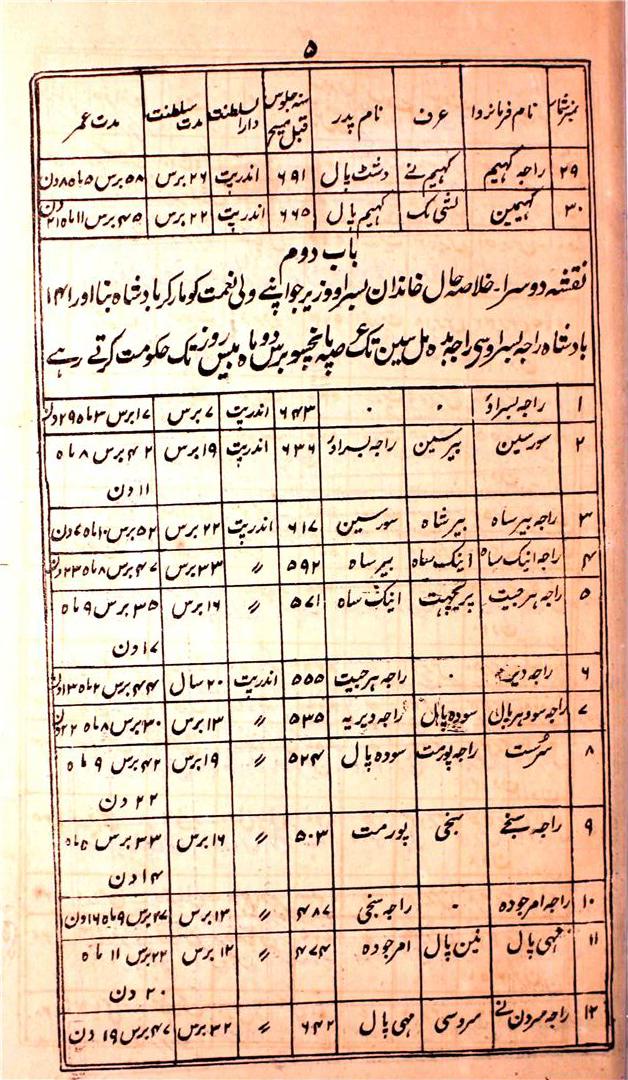 ۵
نمبرشمار | نام فرمانروا | عرف | نام پدر | سنہ جلوس قبل مسیح | دارالسلطنت | مدت سلطنت | مدت عمر
۲۹ | راجہ کہیم | کہیم نے | دشٹ پال | ۶۹۱ | اندرپت | ۲۶ برس | ۵۸ برس ۵ ماہ ۸ دن
۳۰ | کہیمین | لشی مک | کہیم پال | ۶۶۵ | اندرپت | ۲۲ برس | ۴۵ برس ۱۱ ماہ ۲۱ دن
باب دوم
نقشہ دوسرا۔ خلاصہ حال خاندان بسراو وزیر جو اپنے ولی نعمت کو مار کر بادشاہ بنا اور ۱۴
بادشاہ راجہ بسراو سی راجہ بدہ مل سین تک عرصہ پانچسو برس دو ماہ بیس روز تک حکومت کرتے رہے
۱ | راجہ بسراؤ | ۰ | ۰ | ۶۴۳ | اندرپت | ۷ برس | ۱۷ برس ۳ ماہ ۲۹ دن
۲ | سورسین | بیرسین | راجہ بسراؤ | ۶۳۶ | اندرپت | ۱۹ برس | ۴۲ برس ۸ ماہ
۱۱ دن
۳ | راجہ بیرساہ | بیرشاہ | سورسین | ۶۱۷ | اندرپت | ۲۲ برس | ۵۲ برس ۱۰ ماہ ۷ دن
۴ | راجہ انیک ساہ | اینک ساہ | بیرساہ | ۵۹۲ | // | ۲۳ برس | ۴۷ برس ۸ ماہ ۲۳ دن
۵ | راجہ ہرجیت | پریچہت | انیک ساہ | ۵۷۱ | // | ۱۶ برس | ۳۵ برس ۹ ماہ
۱۷ دن
۶ | راجہ دیرہ | ۰ | راجہ ہرجیت | ۵۵۵ | اندرپت | ۲۰ سال | ۴۴ برس ۲ ماہ ۱۳ دن
۷ | راجہ سودہرپال | سودہ پال | راجہ دیریہ | ۵۳۵ | // | ۱۳ برس | ۳۰ برس ۸ ماہ ۲۲ دن
۸ | سرست | راجہ پورمت | سودہ پال | ۵۲۴ | // | ۱۹ برس | ۴۲ برس ۹ ماہ
۲۲ دن
۹ | راجہ سنجے | سنجی | پورمت | ۵۰۳ | // | ۱۶ برس | ۳۳ برس ۵ ماہ
۱۴ دن
۱۰ | راجہ امرجودہ | ۰ | راجہ سنجی | ۴۸۷ | // | ۱۳ برس | ۲۷ برس ۹ ماہ ۱۶ دن
۱۱ | مہی پال | نین پال | امرجودہ | ۴۷۴ | // | ۱۲ برس | ۲۲ برس ۱۱ ماہ
۲۰ دن
۱۲ | راجہ سردن نے | سروسی | مہی پال | ۶۴۲ | // | ۳۲ برس | ۴۷ برس ۱۹ دن